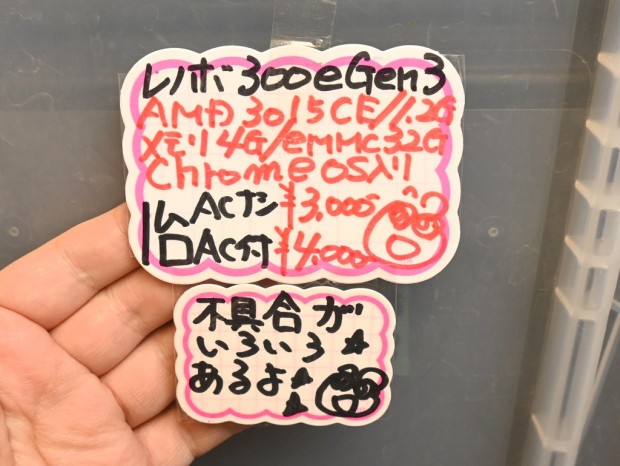 レノボ300eGen3
AMD3015CE/1.2G
メモリ4G/eMMC32G
ChromeOS入り
ACナシ¥3,000
AC付¥4,000
不具合が
いろいろ★
あるよ★★